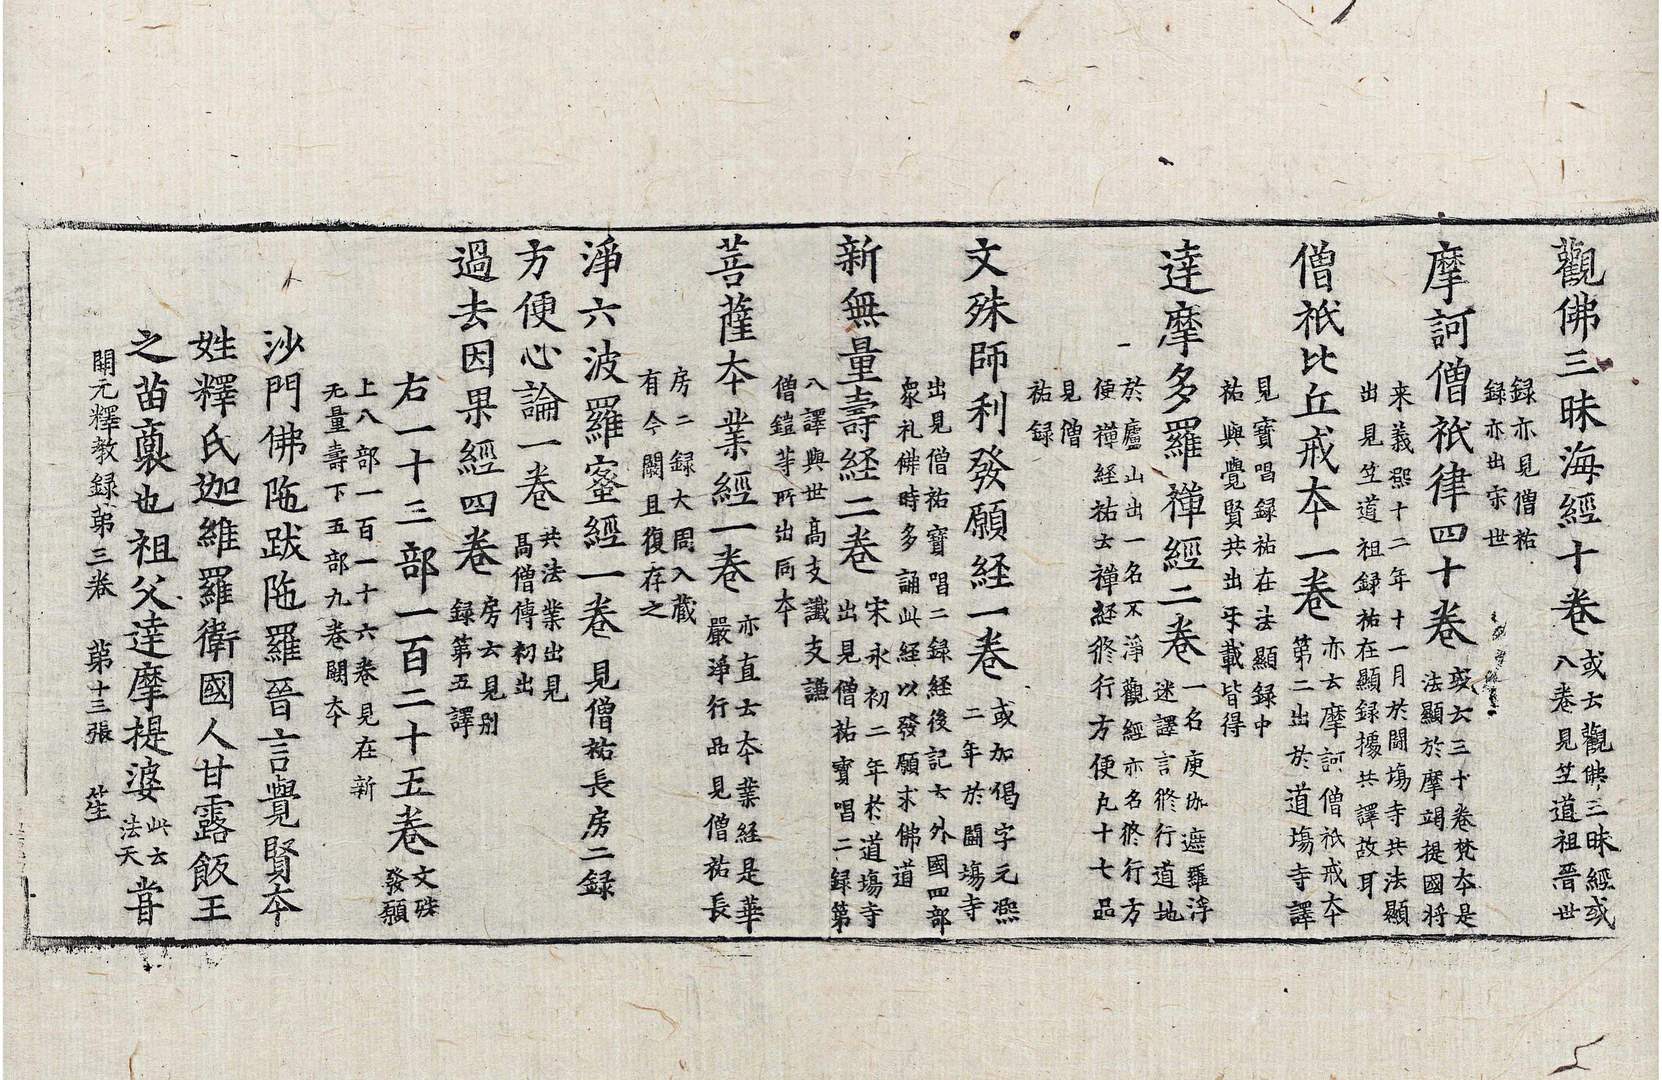 觀佛三昧海經十卷 或云觀佛三昧經或八卷見竺道祖晉世
録亦見僧祐録亦出宋世
摩訶僧祇律四十卷 或云三十卷梵夲是法顯於摩竭提國將
来義熙十二年十一月於鬪場寺共法顯出見竺道祖録祐在顯録據共譯故耳
僧祇比丘戒夲一卷 亦云摩訶僧祇戒夲第二出於道場寺譯
見寶唱録祐在法顯録中祐與覺賢共出㸦載皆得
達摩多羅禪經二卷 一名庾伽遮羅浮迷譯言修行道地
一於廬山出一名不淨觀經亦名修行方便禪経祐云禪経修行方便凡十七品
見僧祐録
文殊師利發願經一卷 或加偈字元熙二年於鬪場寺
出見僧祐寶唱二録経後記云外國四部衆礼佛時多誦此経以發願求佛道
新無量壽経二卷 宋永初二年於道場寺出見僧祐寶唱二録第
八譯與世高支讖支謙僧鎧等所出同夲
菩薩夲業經一卷 亦直云夲業経是華嚴淨行品見僧祐長
房二録大周入藏有今闕且復存之
淨六波羅蜜經一卷 見僧祐長房二録
方便心論一卷 共法業出見高僧傳初出
過去因果經四卷 房云見别録第五譯
右一十三部一百二十五卷 文殊發願
上八部一百一十六卷見在新无量壽下五部九卷闕夲
沙門佛陁跋陁羅晉言覺賢夲
姓釋氏迦維羅衛國人甘露飯王
之苗裔也祖父達摩提婆 此云法天 甞
開元釋教録苐三卷 苐十三張 笙